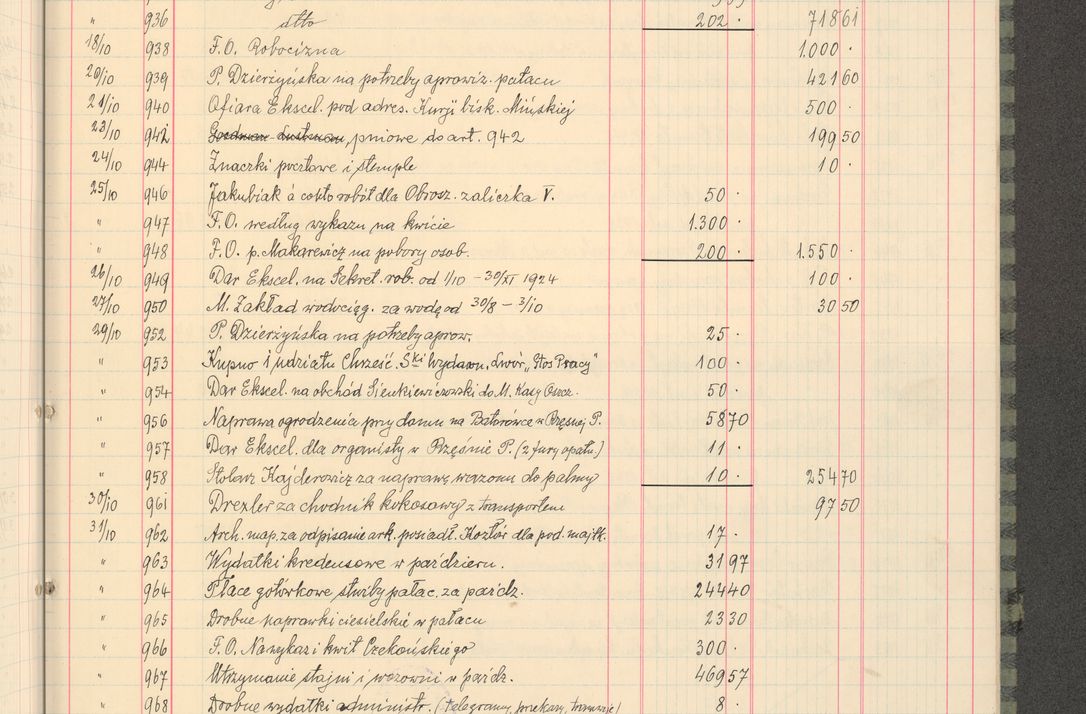 " 936 dtto 202 · 71861
18/10 938 F.O. Robocizna 1.000 ·
20/10 939 P. Dzierżyńska na potrzeby aprowiz. pałacu 42160
21/10 940 Ofiara Ekscel. pod adres. Kurji bisk. Mińskiej 500 ·
23/10 942 pniowe do art. 942 19950
24/10 944 Znaczki pocztowe i stemple 10 ·
25/10 946 Jakubiak à cobto robót dla Obrosz. zaliczka V. 50 ·
" 947 F.O. według wykazu na kwicie 1.300 ·
" 948 F.O. p. Makarewicz na pobory osob. 200 · 1.550 ·
26/10 949 Dar Ekscel. na Sekret. rob. od 1/10 – 30/XI 1924 100 ·
27/10 950 M. Zakład wodociąg. za wodę od 30/8 – 3/10 3050
29/10 952 P. Dzierżyńska na potrzeby aprow. 25 ·
" 953 Kupno 1 udziału Chrześć. Ski Wydawn. Lwów „Głos Pracy" 100 ·
" 954 Dar Ekscel. na obchód Sienkiewiczowski do M. Kasy Oszcz. 50 ·
" 956 Naprawa ogrodzenia przy domu na Batorówce w Rzęsnej P. 5870
" 957 Dar Ekscel. dla organisty w Rzęśnie P. (2 fury opału) 11 ·
" 958 Stolarz Kajderowicz za naprawę wazonu do palmy 10 · 25470
30/10 961 Drexler za chodnik kokosowy z transportem 9750
31/10 962 Arch. map. za odpisanie ark. posiadł. Kozłów dla pod. majątk. 17 ·
" 963 Wydatki kredensowe w październ. 3197
" 964 Płace gotówkowe służby pałac. za paźdz. 24440
" 965 Drobne naprawki ciesielskie w pałacu 2330
" 966 F.O. Na wykaz i kwit Czekońskiego 300 ·
" 967 Utrzymanie stajni i wozowni w paźdz. 46957
" 968 Drobne wydatki administr. (telegramy, przekazy, tramwaje) 8 ·